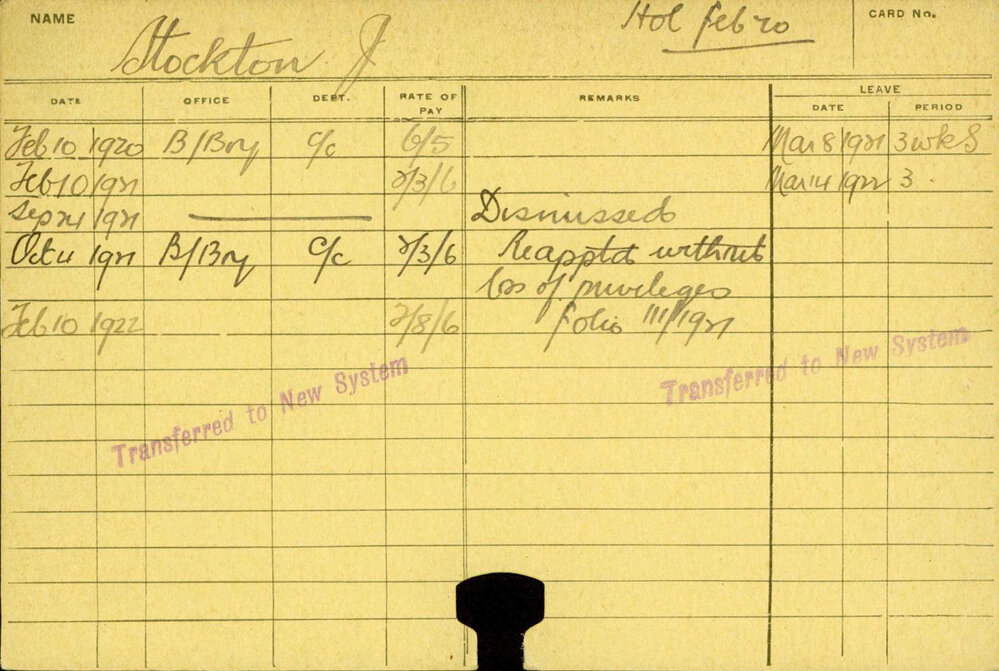 NAME Stockton J Hol Feb 20 CARD No.
LEAVE
DATE OFFICE DEPT. RATE OF PAY REMARKS DATE PERIOD
Feb 10 1920 B/Bry C/c 6/5 Mar 8 1921 3 wks
Feb 10 1921 2/3/6 Mar 14 1922 3
Sep 24 1921 Dismissed
Oct 4 1921 B/Bry C/c 2/3/6 Reapptd without
loss of privileges
Feb 10 1922 2/8/6 folio 111/1921
Transferred to New System
Transferred to New System